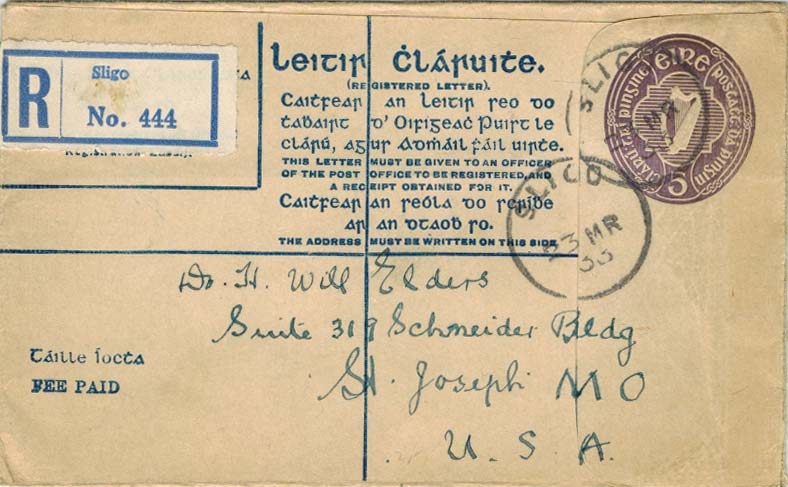 R
Sligo
No. 444
Leitir Ċláruiṫe.
(REGISTERED LETTER).
Caiṫfear an leitir seo do
ṫaḃairt d' Oifigeaċ Puirt le
clárú, agus admáil fáil uirṫe.
THIS LETTER MUST BE GIVEN TO AN OFFICER
OF THE POST OFFICE TO BE REGISTERED, AND
A RECEIPT OBTAINED FOR IT.
Caiṫfear an seóla do scríḃe
ar an dtaoḃ so.
THE ADDRESS MUST BE WRITTEN ON THIS SIDE
éire postas dá pingin
5
SLIGO
MR
SLIGO
23 MR
33
Dr. H. Will Elders
Suite 319 Schneider Bldg
St. Joseph MO
U. S. A.
Táille íocṫa
FEE PAID